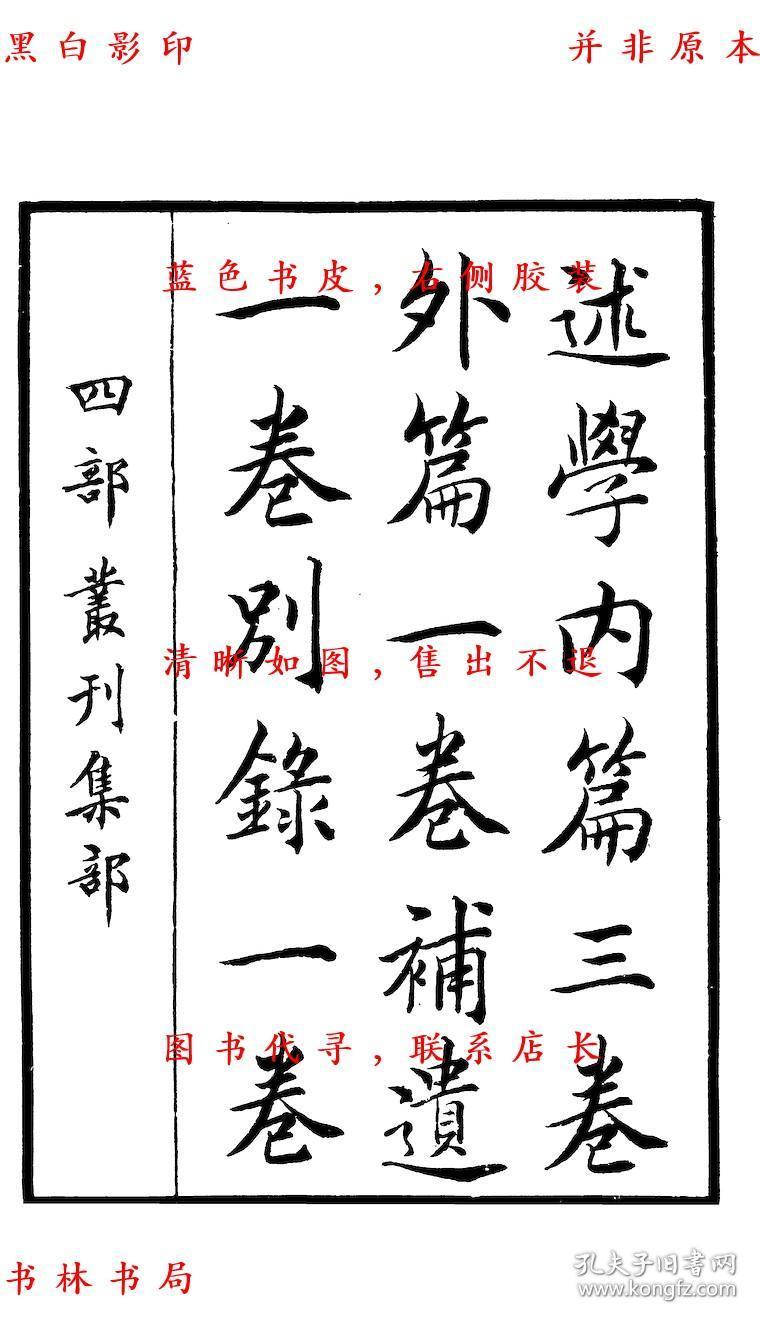 黑白影印
并非原本
述學内篇三卷
外篇一卷補遺
一卷別錄一卷
四部叢刊集部
蓝色书皮，右侧胶装
清晰如图，售出不退
图书代寻，联系店长
书林书局
孔夫子旧书网
www.kongfz.com